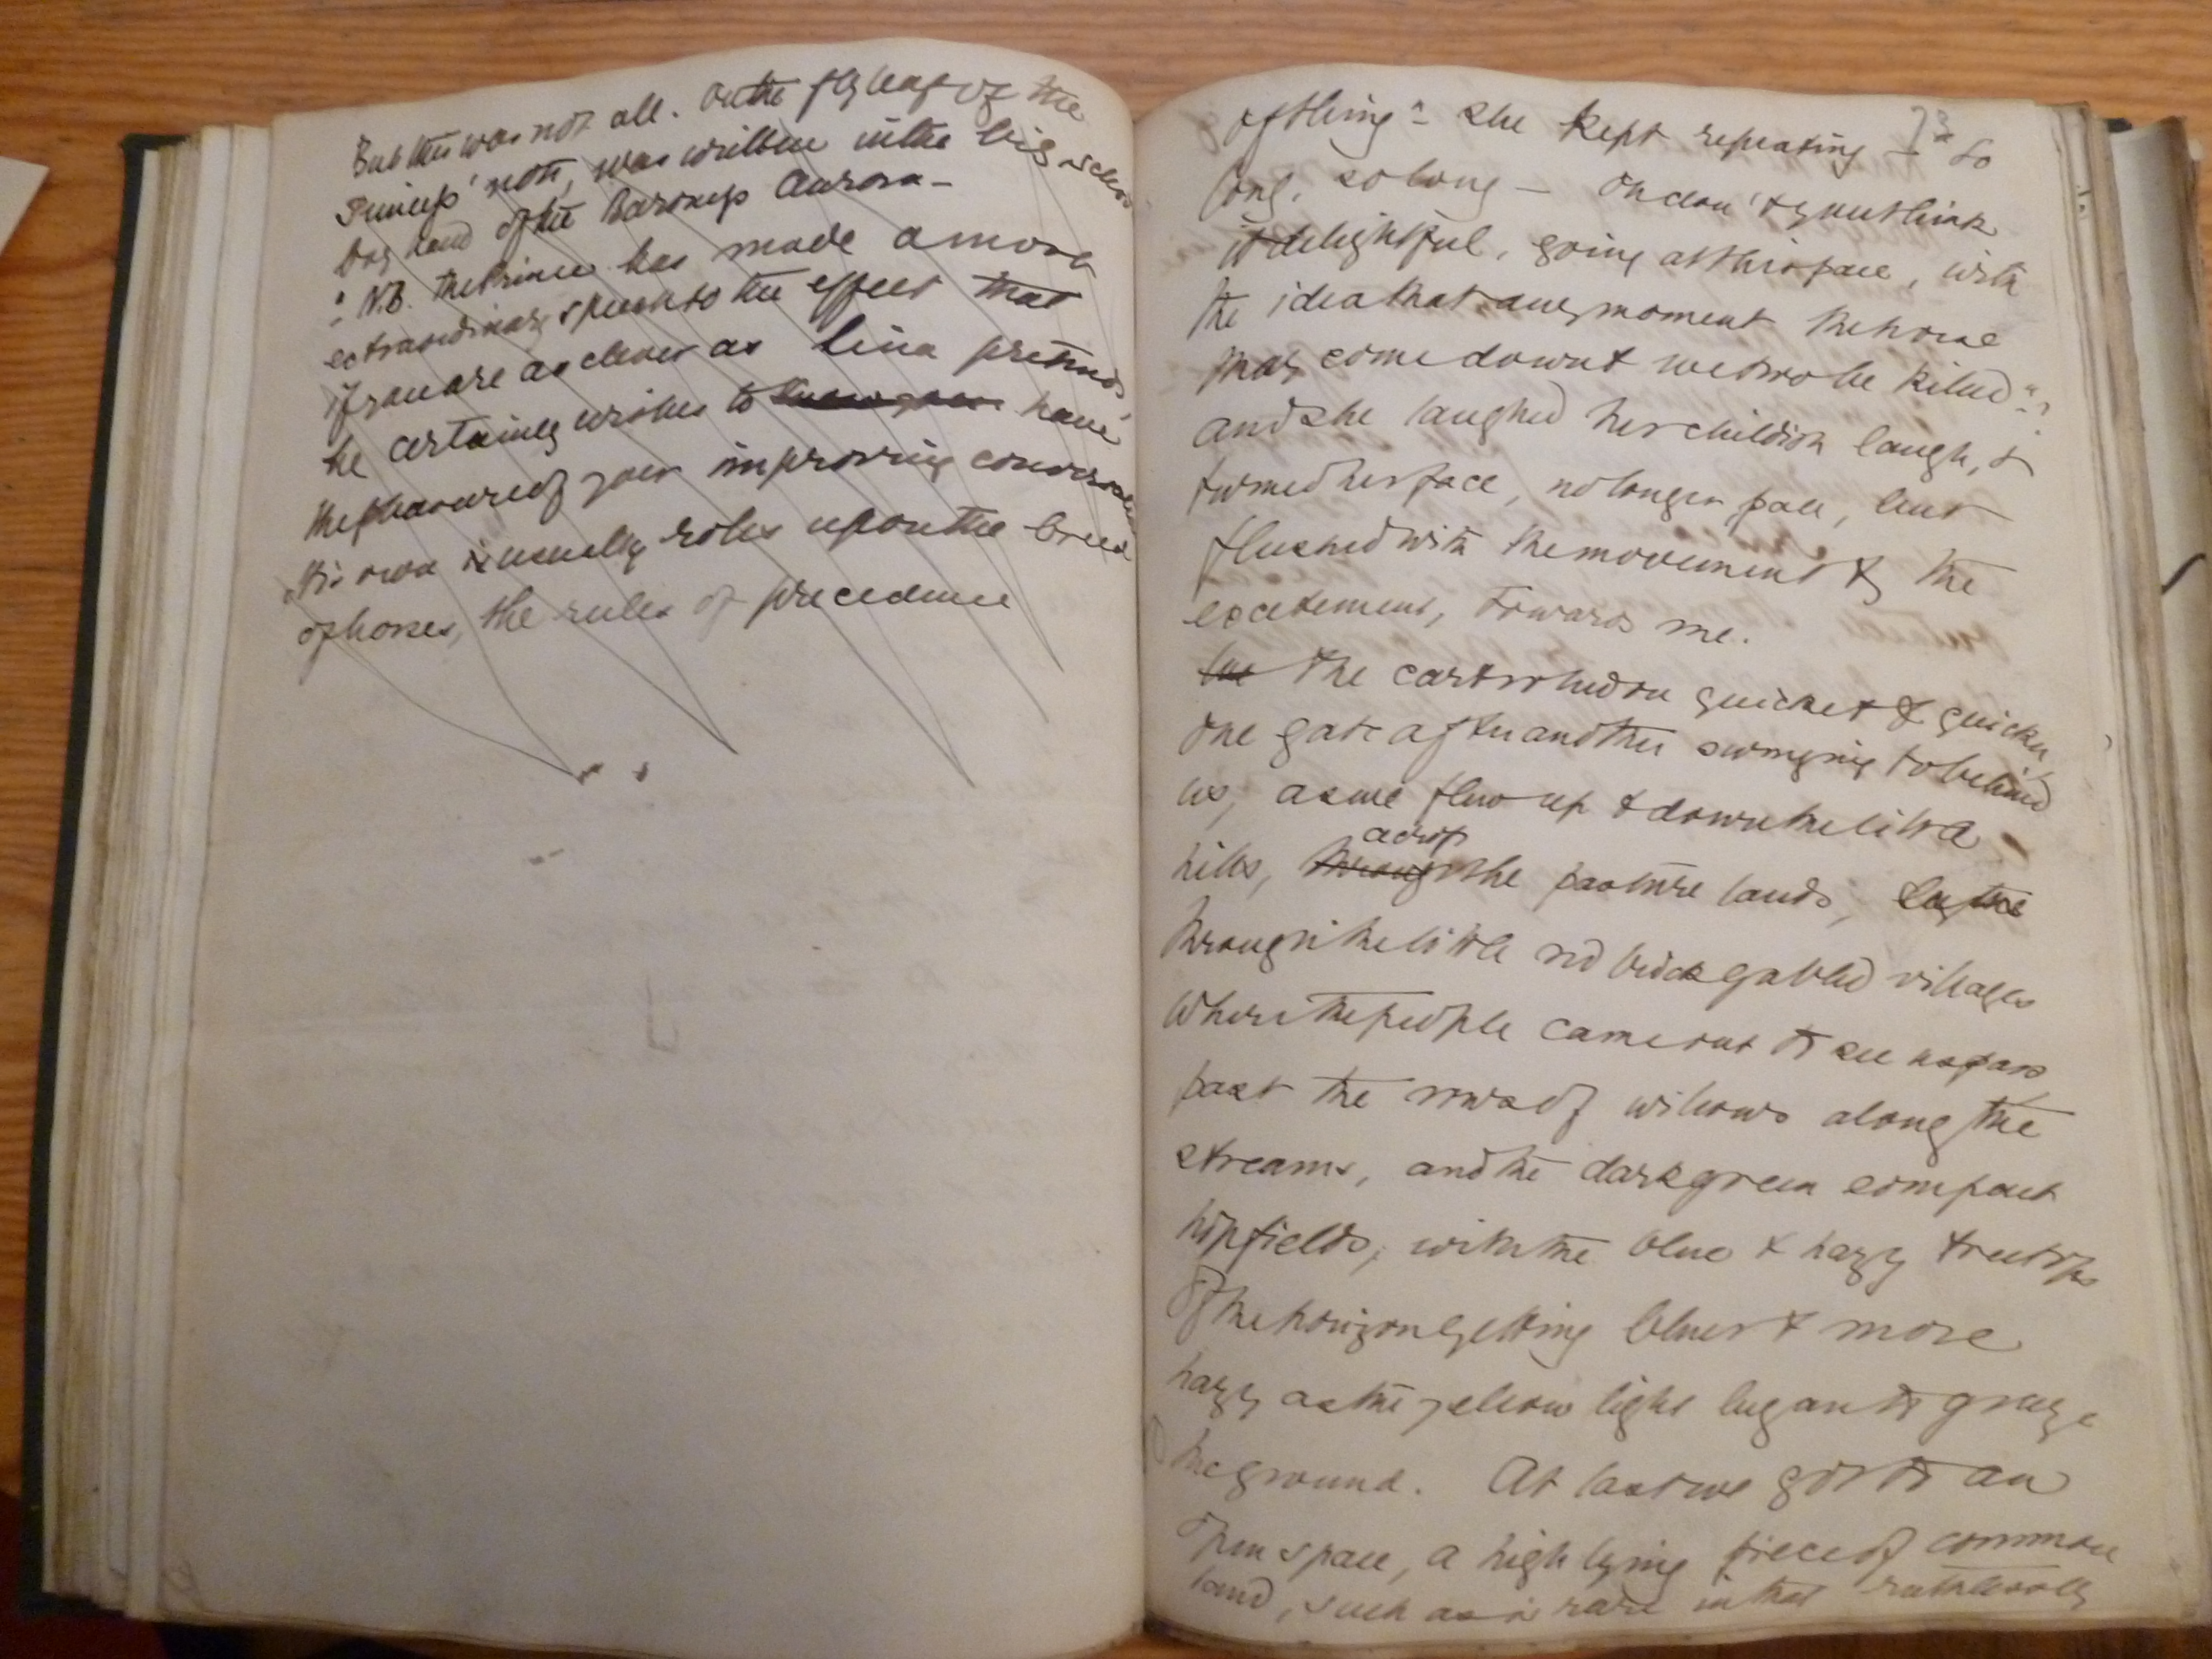 But this was not all. On the fly leaf of the
Princeps' note, was written in the big school
boy hand of the Baroness Aurora –
"N.B. The Prince has made a most
extraordinary speech to the effect that
if you are as clever as Lina pretends,
he certainly wishes to have
the pleasure of your improving conversation
His own is usually rolls upon the breed
of horses, the rules of precedence
of thing" – she kept repeating – "so
long, so long – Oh don't you think
it delightful, going at this pace, with
the idea that any moment the horse
may come down & we two be killed"?
and she laughed her childish laugh, &
turned her face, no longer pale, but
flushed with the movement & the
excitement, towards me.
but The cart rolled on quicker & quicker
one gate after another swinging to behind
us, as we flew up & down the little
across
hills, through the pasture lands, by the
through the little red brick gabled villages
where the people came out to see us pass
past the rows of willows along the
streams, and the dark green compact
hopfields, with the blue & hazy treetops
of the horizon getting bluer & more
hazy as the yellow light began to graze
the ground. At last we got to an
open space, a high lying piece of common
land, such as is rare in that ruthlessly